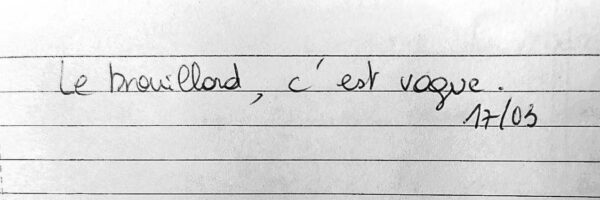 Le brouillard, c'est vague.
17/03